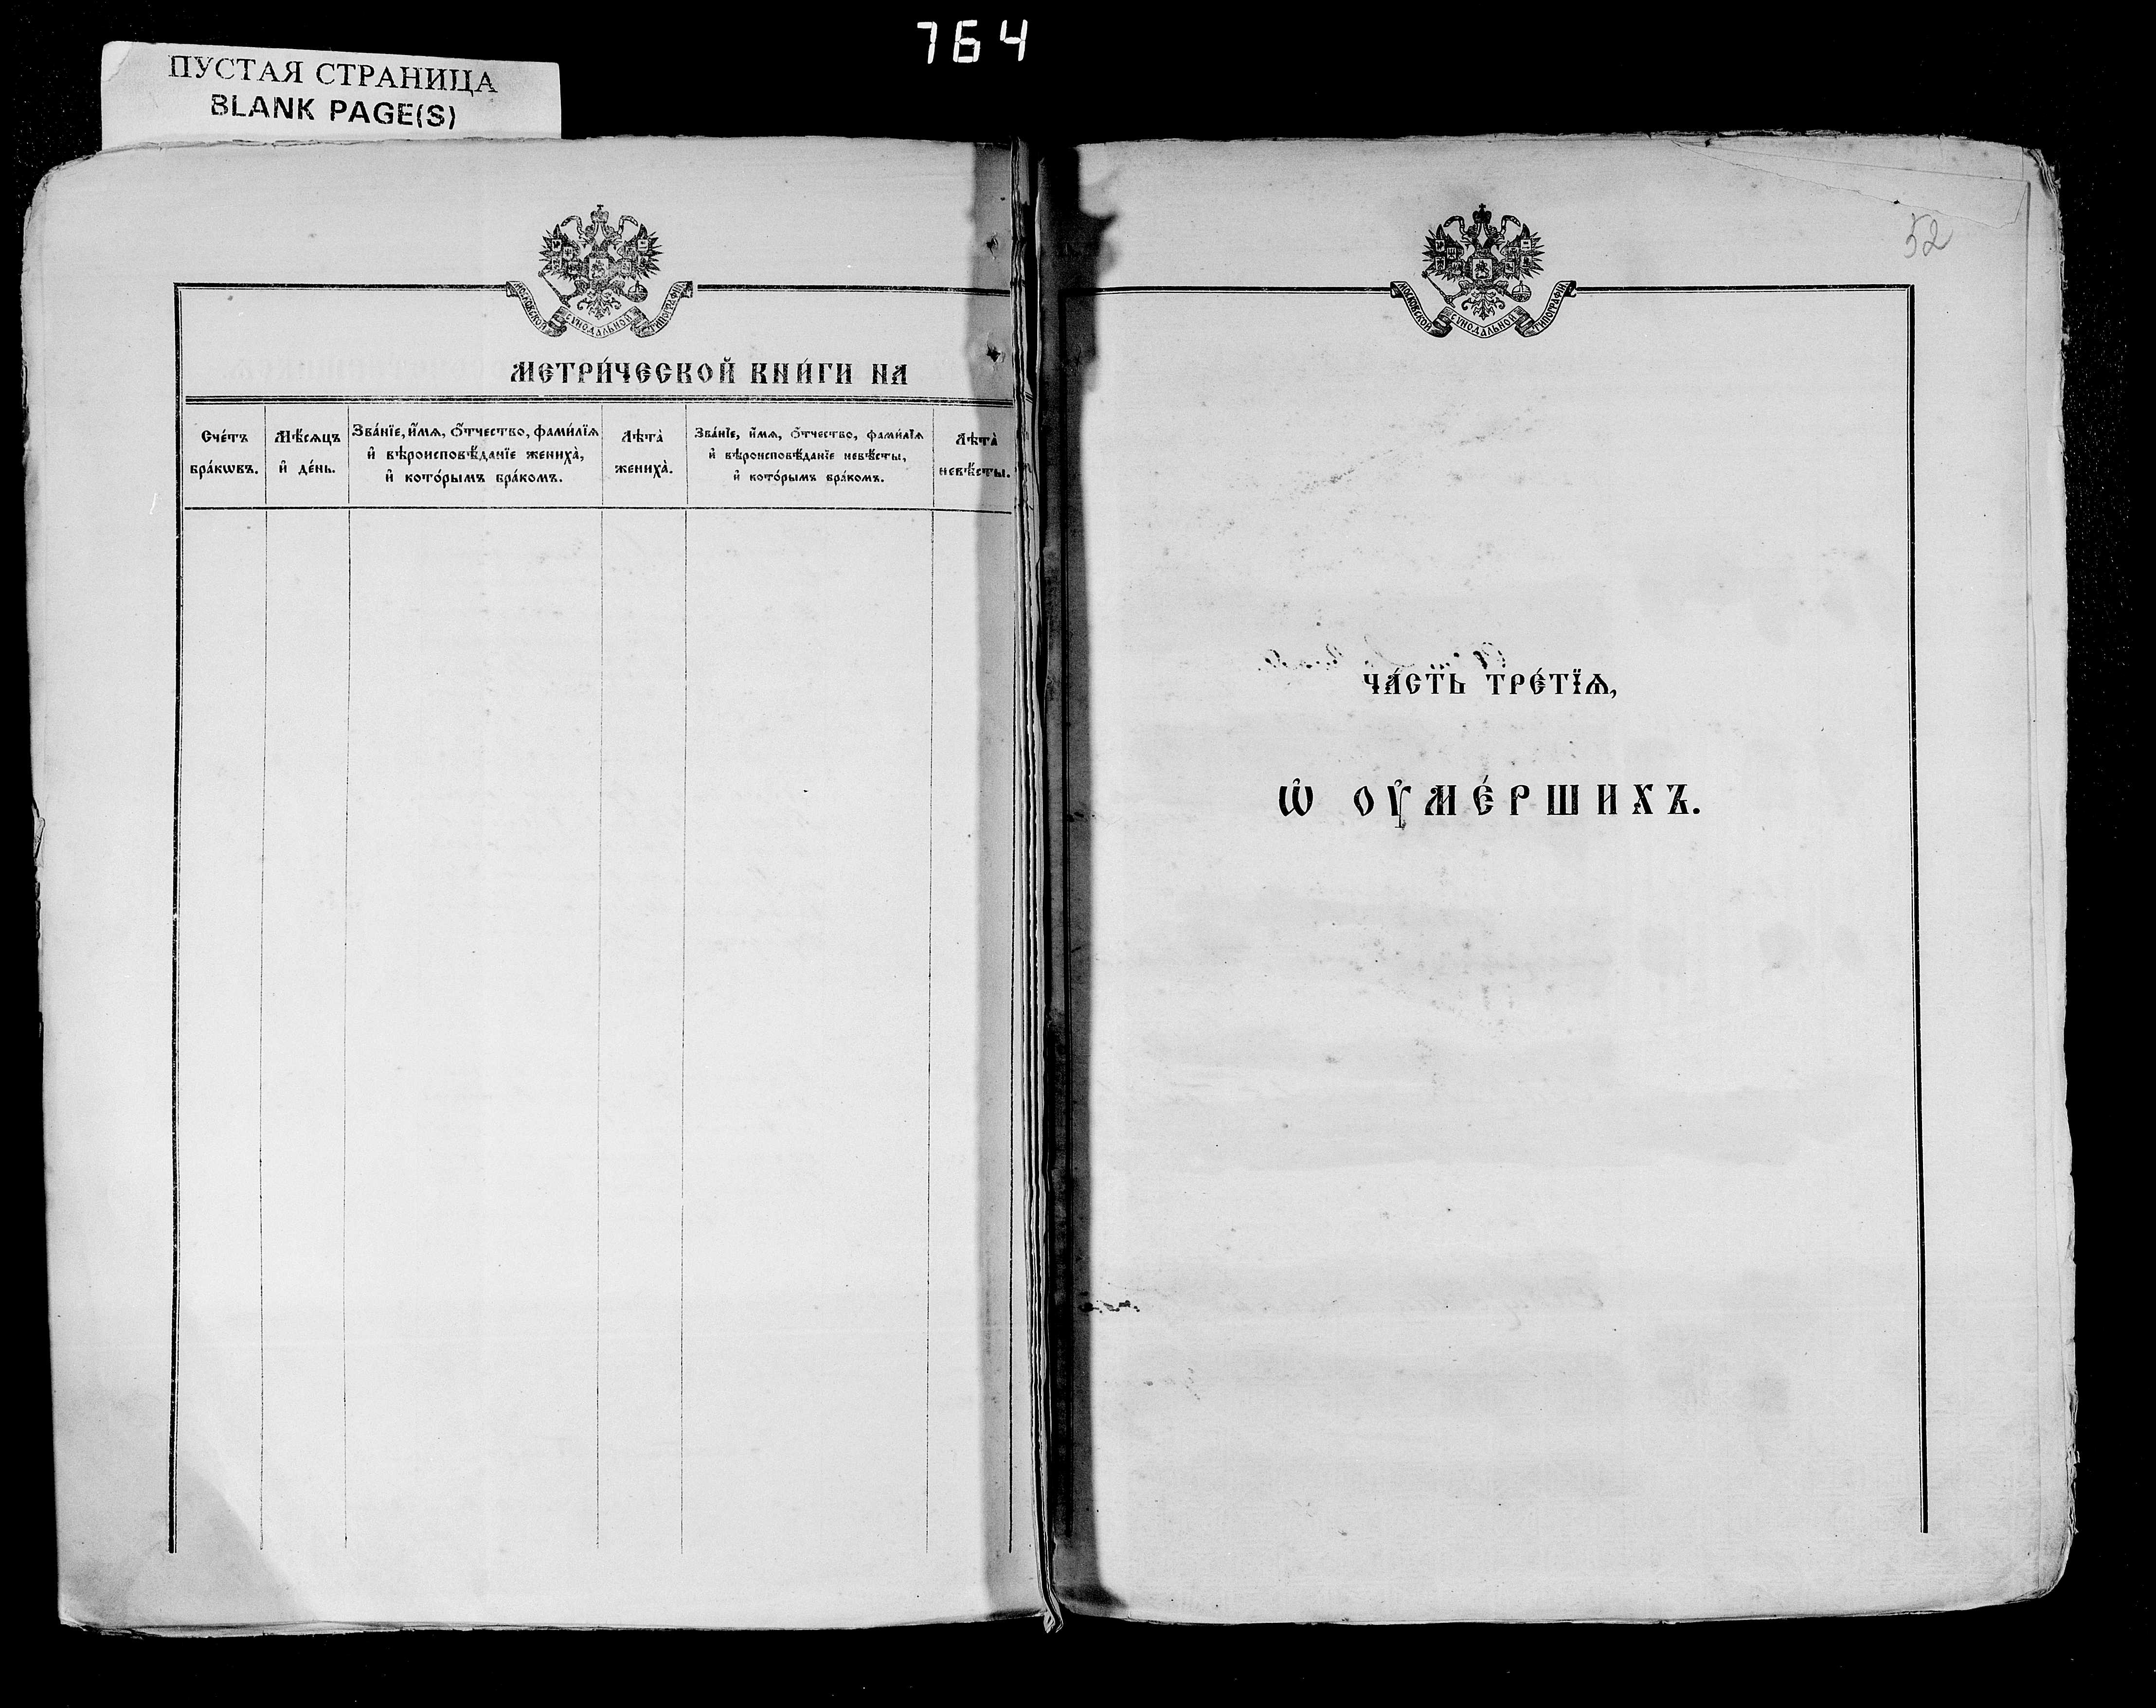 764
ПУСТАЯ СТРАНИЦА
BLANK PAGE(S)
МОСКОВСКОЙ СѴНОДАЛЬНОЙ ТИПОГРАФІИ
МЕТРИ́ЧЕСКОЙ КНИ́ГИ НА
Сче́тъ
бра́кѡвъ.
Мѣ́сяцъ
и҆ де́нь.
Зва́нїе, и҆́мѧ, ѻ҆́тчество, фами́лїѧ
и҆ вѣроисповѣ́данїе жениха̀,
и҆ кото́рымъ бра́комъ.
Лѣта̀
жениха̀.
Зва́нїе, и҆́мѧ, ѻ҆́тчество, фами́лїѧ
и҆ вѣроисповѣ́данїе невѣ́сты,
и҆ кото́рымъ бра́комъ.
Лѣта̀
невѣ́сты.
52
МОСКОВСКОЙ СѴНОДАЛЬНОЙ ТИПОГРАФІИ
ЧА́СТЬ ТРЕ́ТЇѦ,
Ѡ҆ ОУ҆МЕ́РШИХЪ.